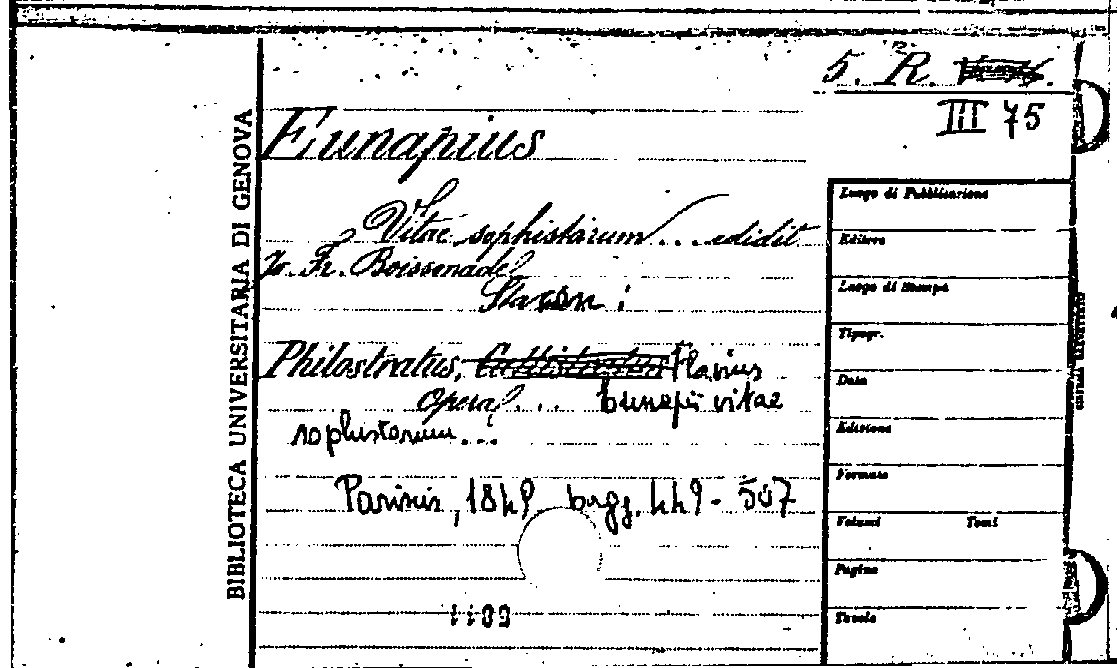 5. R.
III 75
BIBLIOTECA UNIVERSITARIA DI GENOVA
Eunapius
Vitae sophistarum ... edidit
Jo. Fr. Boissonade
Sta con :
Philostratus, Flavius
Opera ... Eunapii vitae
sophistarum ...
Parisiis, 1849 pagg. 449 - 507
Luogo di Pubblicazione
Editore
Luogo di Stampa
Tipogr.
Data
Edizione
Formato
Volumi Tomi
Pagine
Tavole